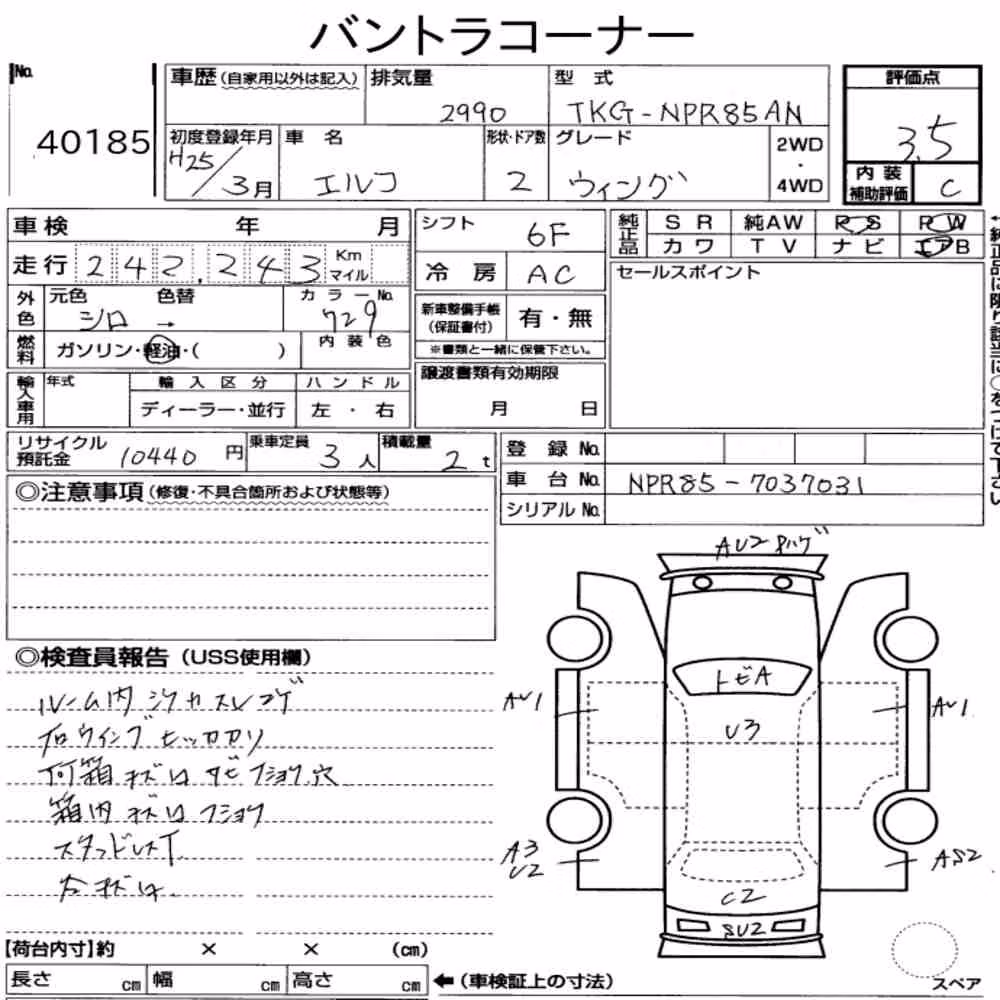 バントラコーナー
No. 40185
車歴（自家用以外は記入） 排気量 2990 型式 TKG-NPR85AN
評価点 3.5
初度登録年月 H25/3月 車名 エルフ 形状・ドア数 2 グレード ウィング 2WD・4WD
内装補助評価 C
車検 年 月
シフト 6F
純正品 SR 純AW PS PW
カワ TV ナビ エアB
走行 242,243 Km マイル
冷房 AC
セールスポイント
外色 元色 シロ 色替 → カラーNo. 729
新車整備手帳（保証書付） 有・無
※書類と一緒に保管下さい。
燃料 ガソリン・軽油・（ ） 内装色
輸入車用 年式 輸入区分 ハンドル
ディーラー・並行 左・右
譲渡書類有効期限
月 日
←純正品に限り該当に○をつけて下さい
リサイクル預託金 10440円 乗車定員 3人 積載量 2t
登録No.
車台No. NPR85-7037031
シリアルNo.
◎注意事項（修復・不具合箇所および状態等）
◎検査員報告（USS使用欄）
ルーム内 シケカスレコゲ
右ウィング ヒッカカリ
荷箱 キズ凹 サビ フショク穴
箱内 キズ凹 フショク
スタッドレスT
各キズ凹
AU2 ｷﾊｹﾞ
トビA
U3
AU1
AU1
A3
U2
AS2
C2
SU2
スペア
【荷台内寸】約 × × （cm）
長さ cm 幅 cm 高さ cm ←（車検証上の寸法）